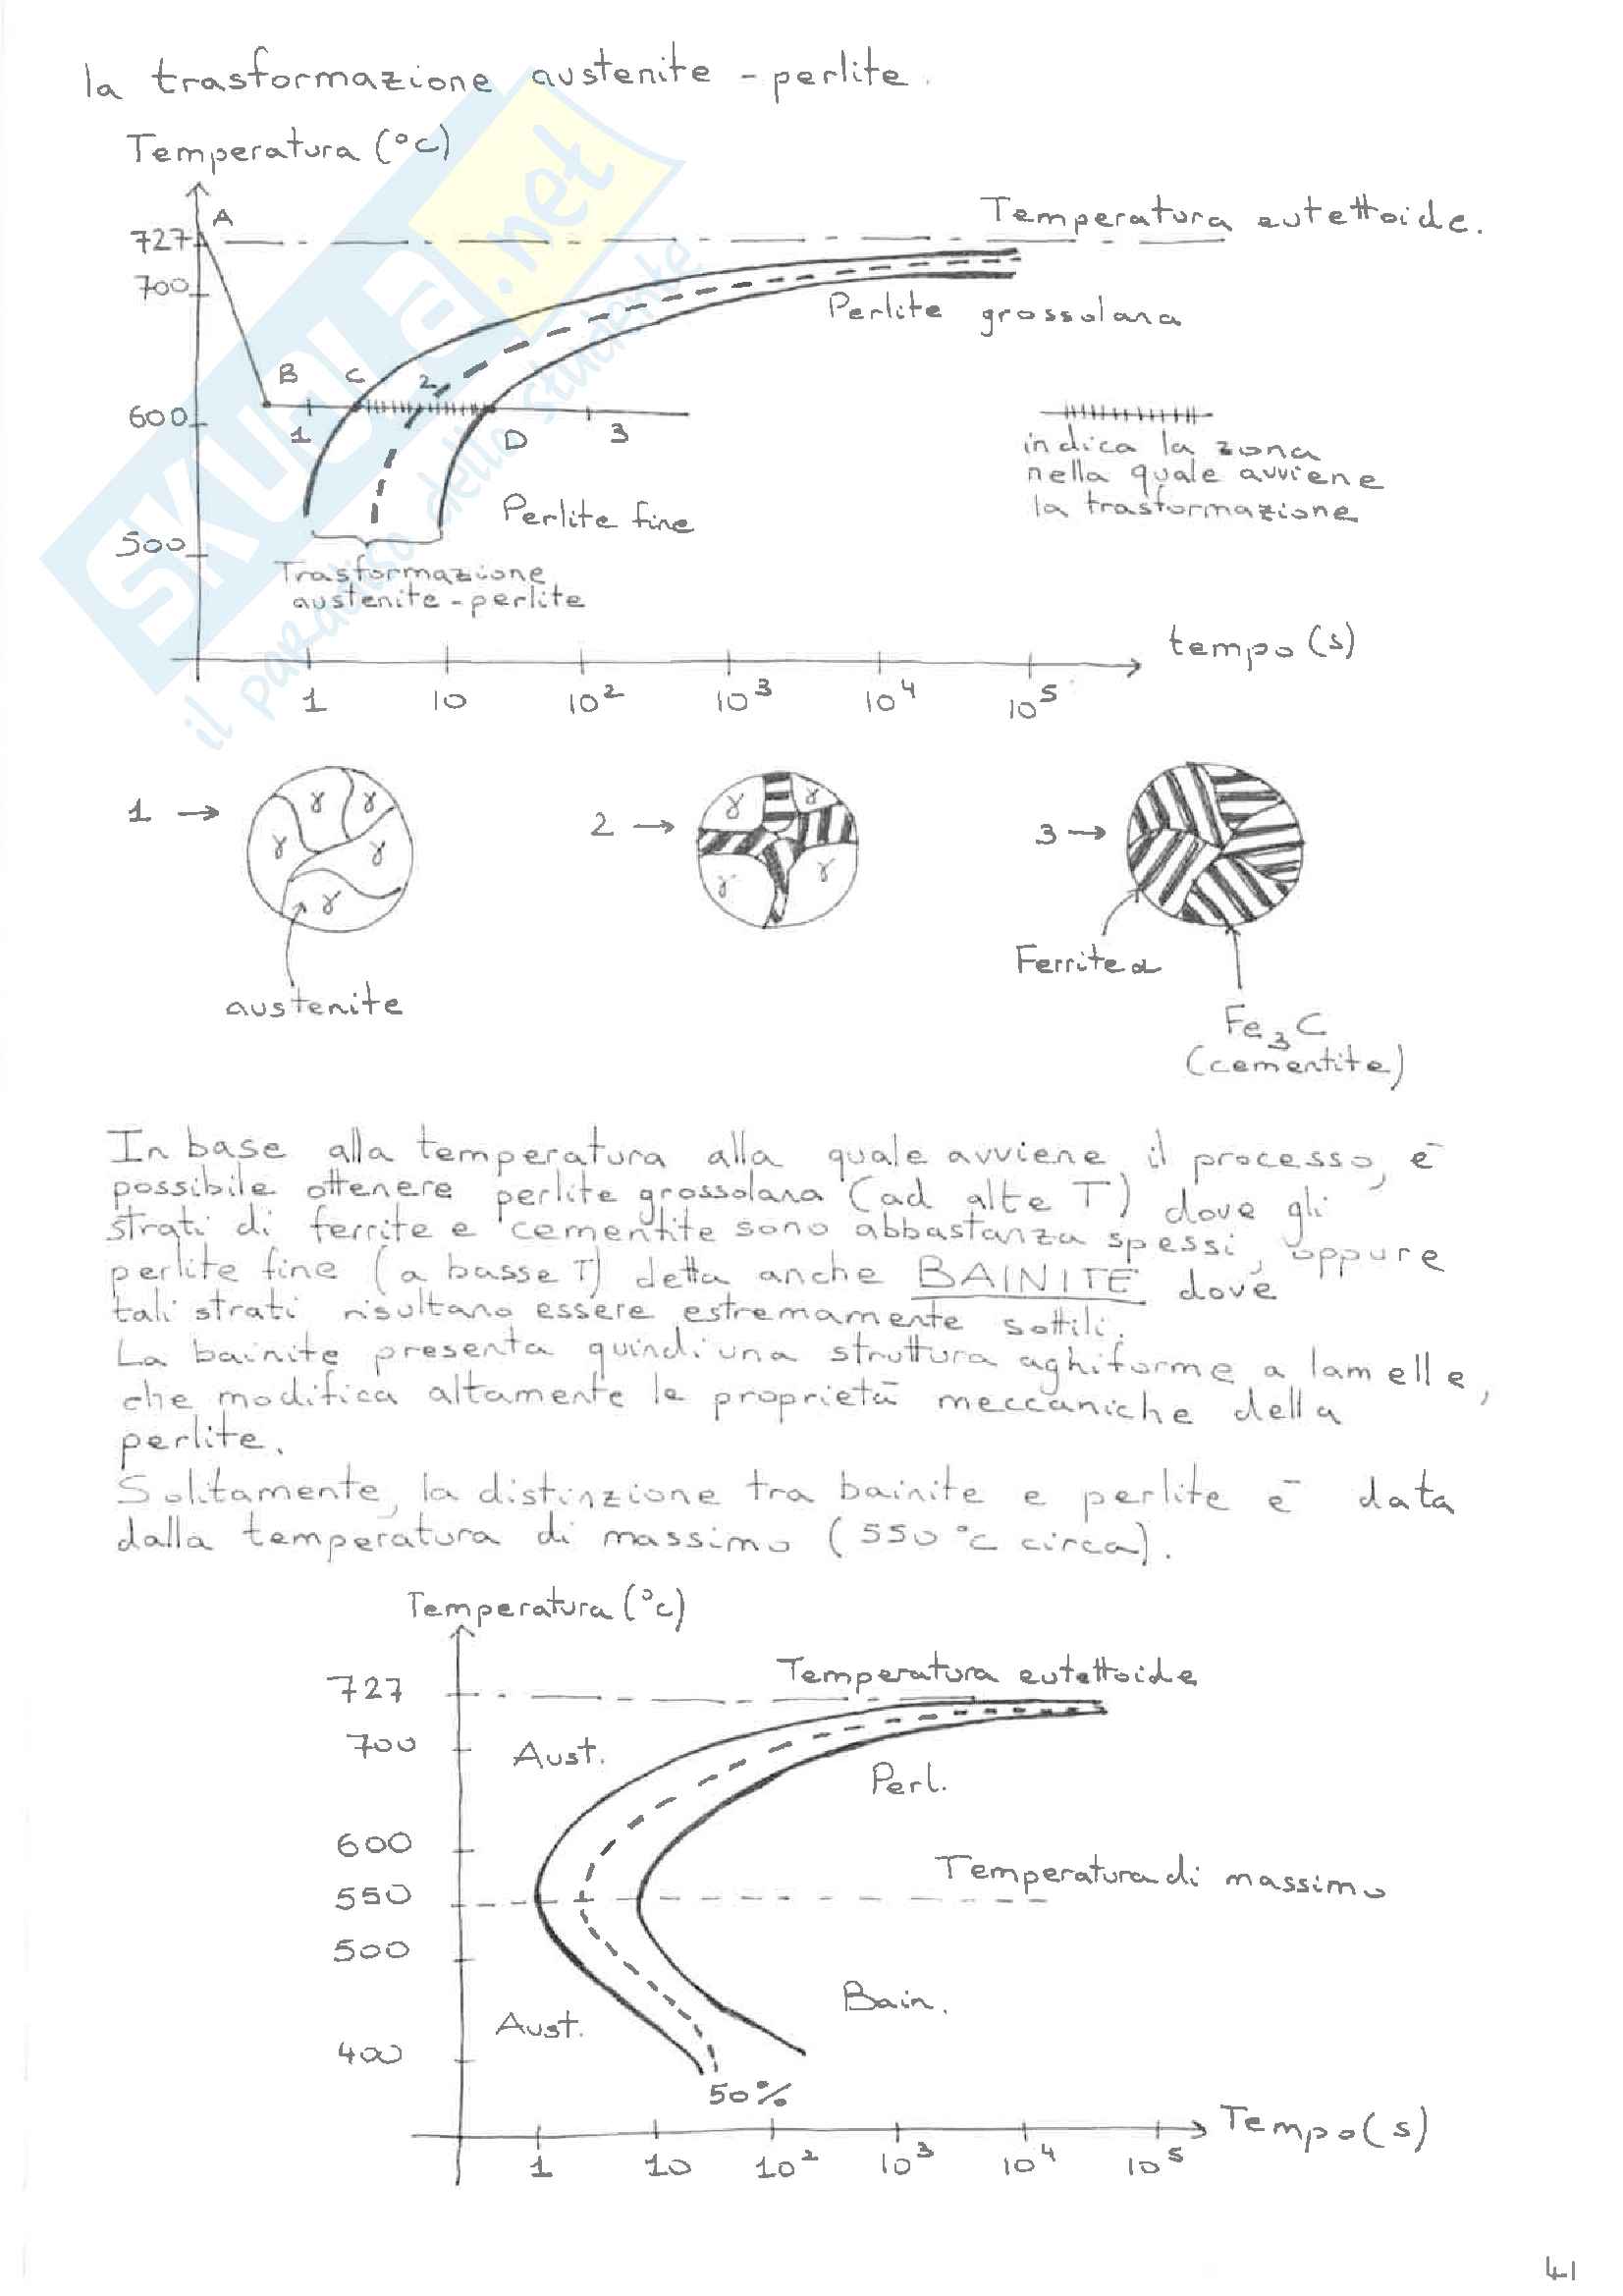 la trasformazione austenite - perlite.
Temperatura (°C)
A
727
Temperatura eutettoide.
700
Perlite grossolana
B C 2
600
1 D 3
indica la zona
nella quale avviene
la trasformazione
Perlite fine
500
Trasformazione
austenite - perlite
tempo (s)
1 10 10² 10³ 10⁴ 10⁵
SKUOLA.net
il paradiso dello studente
1 → γ γ γ γ γ
2 → γ γ γ γ
3 →
austenite
Ferrite α
Fe₃C
(cementite)
In base alla temperatura alla quale avviene il processo, è
possibile ottenere perlite grossolana (ad alte T) dove gli
strati di ferrite e cementite sono abbastanza spessi, oppure
perlite fine (a basse T) detta anche BAINITE dove
tali strati risultano essere estremamente sottili.
La bainite presenta quindi una struttura aghiforme a lamelle,
che modifica altamente le proprietà meccaniche della
perlite.
Solitamente, la distinzione tra bainite e perlite è data
dalla temperatura di massimo (550 °C circa).
Temperatura (°C)
727
Temperatura eutettoide
700
Aust.
Perl.
600
Temperatura di massimo
550
500
Bain.
Aust.
400
50%
Tempo (s)
1 10 10² 10³ 10⁴ 10⁵
41